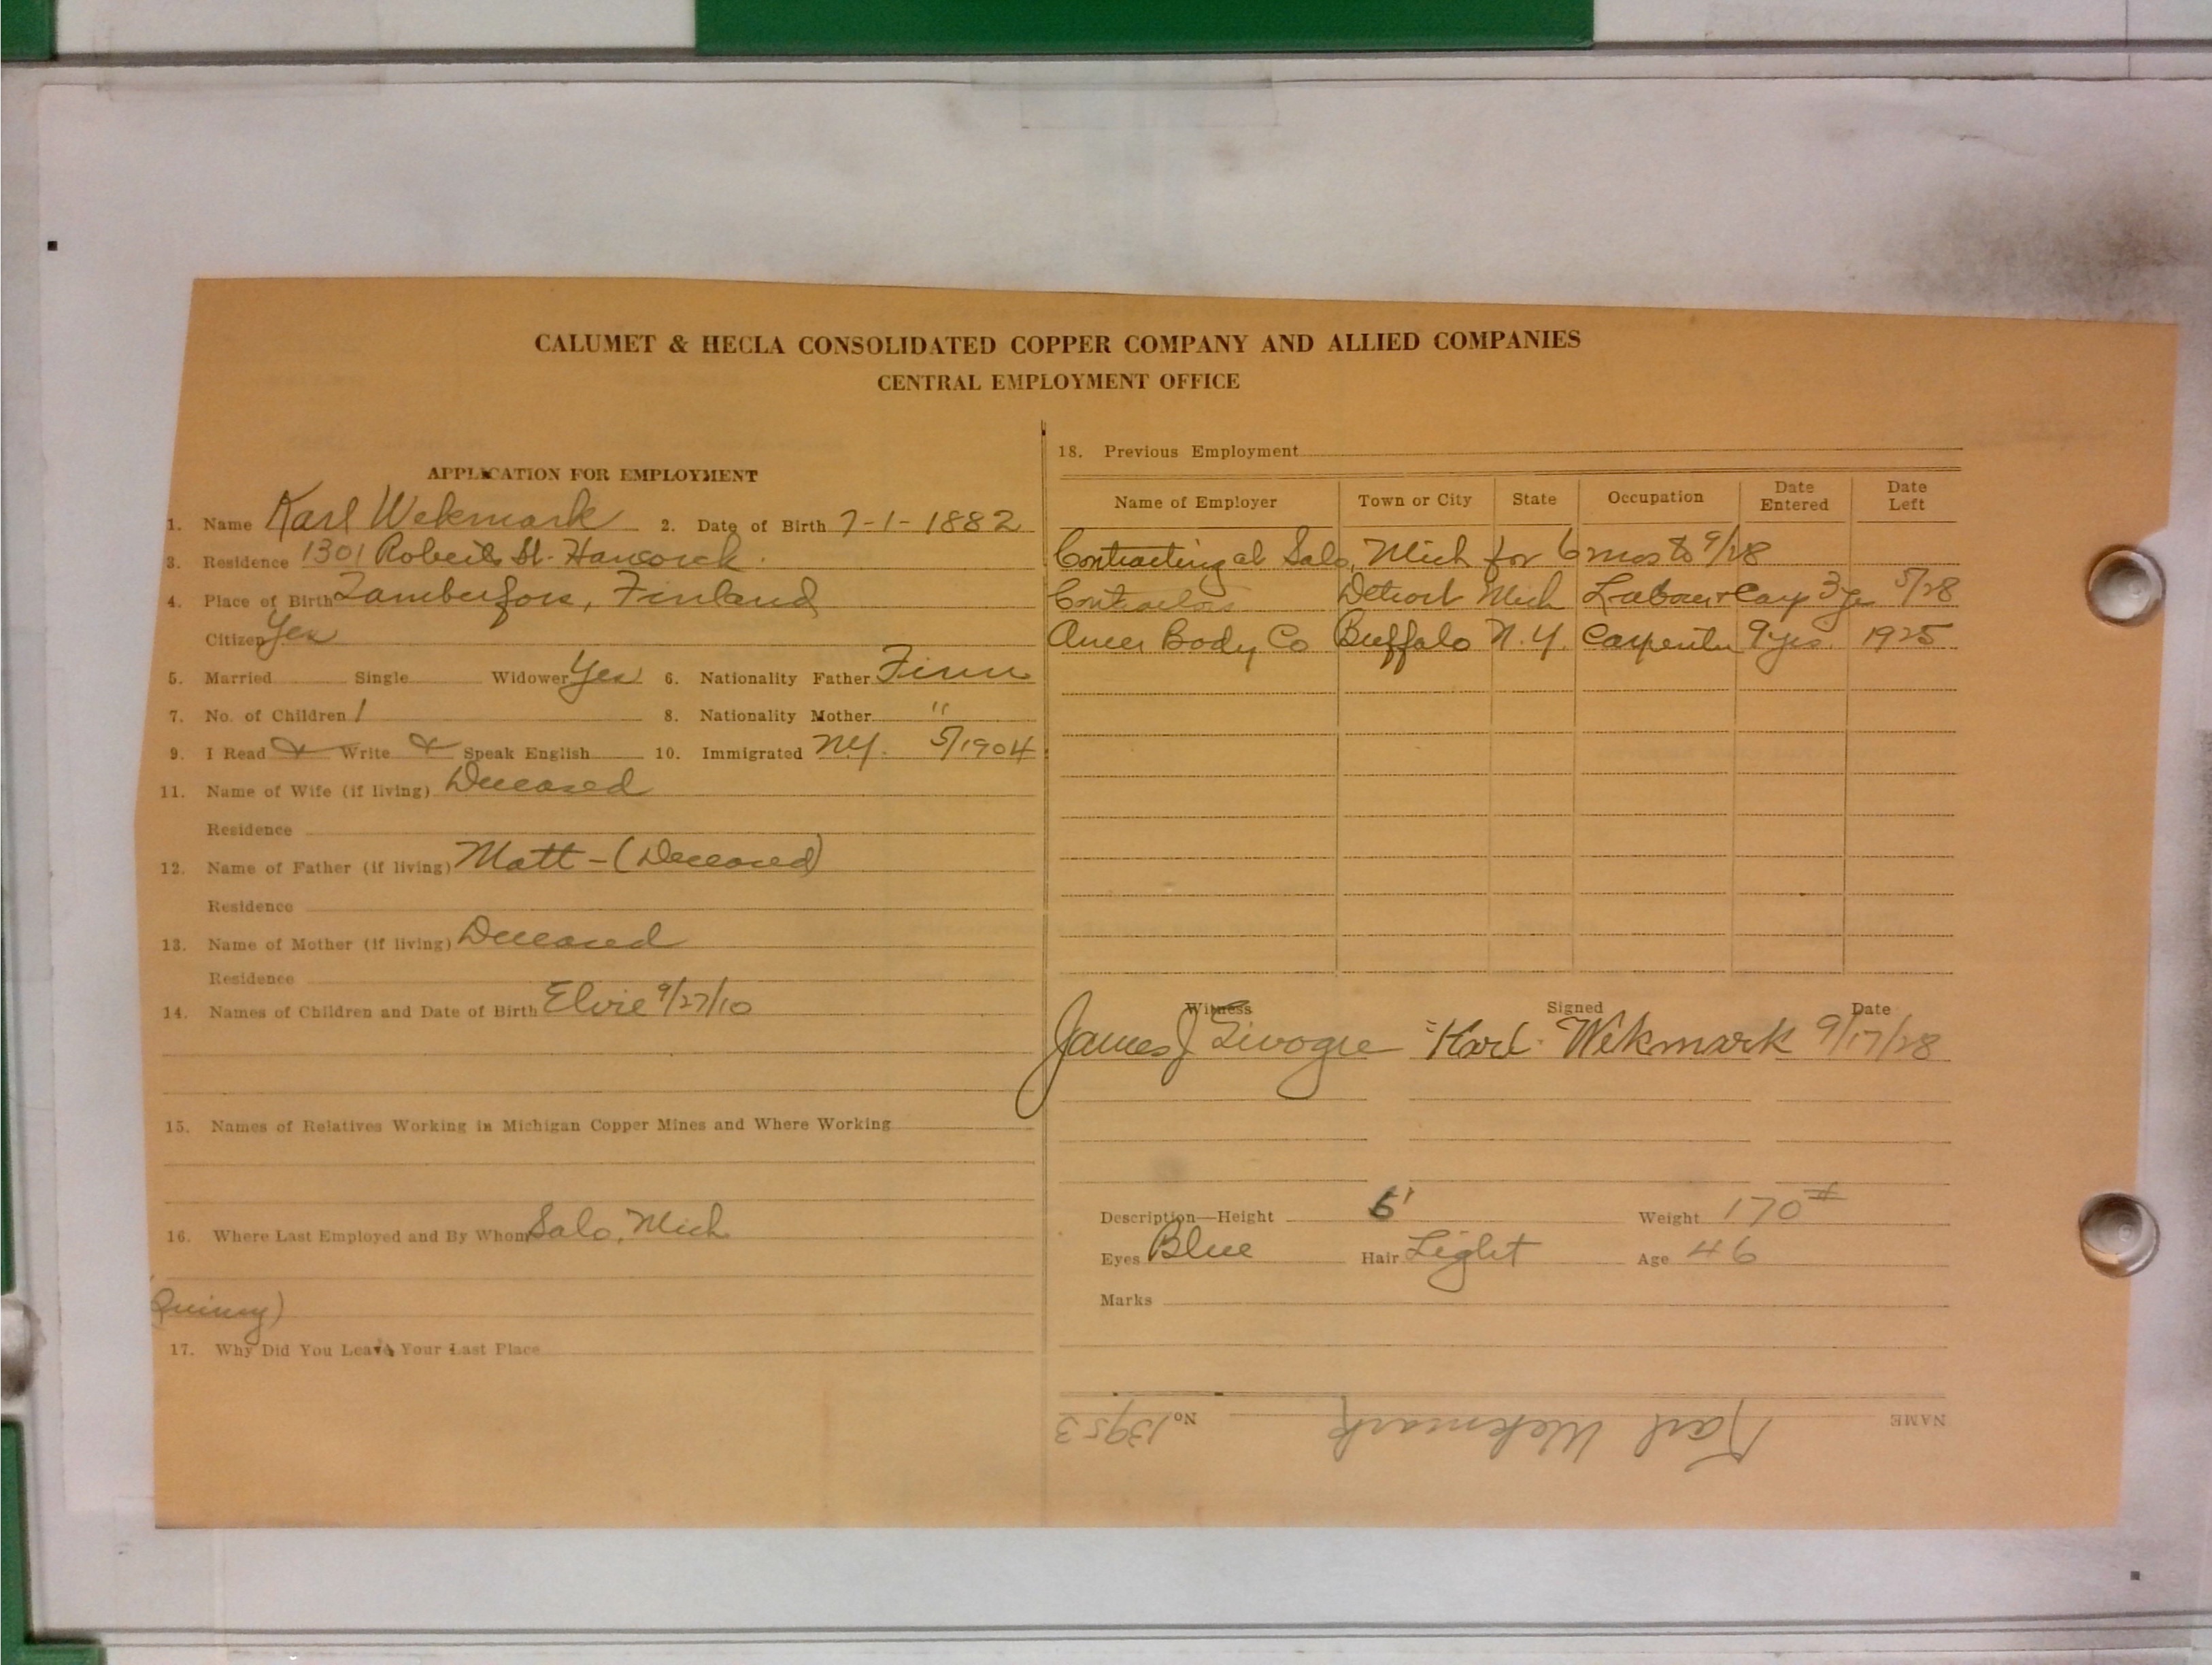 CALUMET & HECLA CONSOLIDATED COPPER COMPANY AND ALLIED COMPANIES
CENTRAL EMPLOYMENT OFFICE
APPLICATION FOR EMPLOYMENT
1. Name Karl Wekmark 2. Date of Birth 7-1-1882
3. Residence 1301 Roberts St. Hancock.
4. Place of Birth Tamberfors, Finland
Citizen Yes
5. Married Single Widower Yes 6. Nationality Father Finn
7. No. of Children 1 8. Nationality Mother "
9. I Read & Write & Speak English 10. Immigrated N.Y. 5/1904
11. Name of Wife (if living) Deceased
Residence
12. Name of Father (if living) Matt - (Deceased)
Residence
13. Name of Mother (if living) Deceased
Residence
14. Names of Children and Date of Birth Elvie 9/27/10
15. Names of Relatives Working in Michigan Copper Mines and Where Working
16. Where Last Employed and By Whom Salo, Mich
(Quincy)
17. Why Did You Leave Your Last Place
18. Previous Employment
Name of Employer Town or City State Occupation Date Entered Date Left
Contracting at Salo, Mich for 6 mos to 9/28
Contractors Detroit Mich Labour & Carp 3 yrs 5/28
Amer Body Co Buffalo N.Y. Carpenter 9 yrs. 1925
Witness Signed Date
James J Karl Wekmark 9/17/28
Description—Height Weight 170#
Eyes Blue Hair Light Age 46
Marks
NAME Karl Wekmark No. 13953